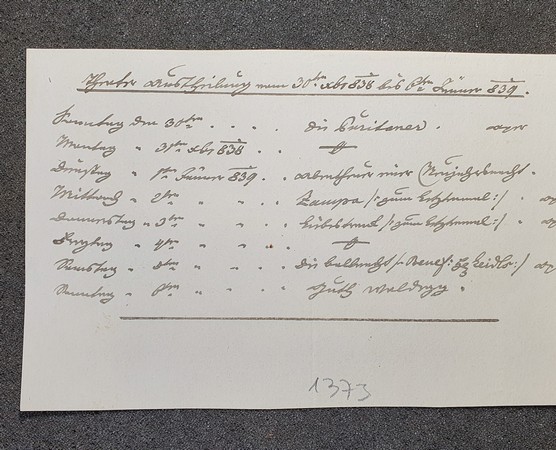 Theater Austheilung vom 30ten xbr 838 bis 6ten Jänner 839.
Sonntag den 30ten . . . . die Puritaner . oper
Montag " 31ten xbr 838 . .
Dinstag " 1ten Jänner 839 . . Abentheuer einer Neujahrsnacht .
Mittwoch " 2ten " " . . Zampa /: zum letztenmal :/ "
Donnerstag " 3ten " " . . Liebestrank /: zum letztenmal :/ "
Freytag " 4ten " " . .
Samstag " 5ten " " . . die Ballnacht /: Benef:
Sonntag " 6ten " " . . Guth Waldegg .
1373